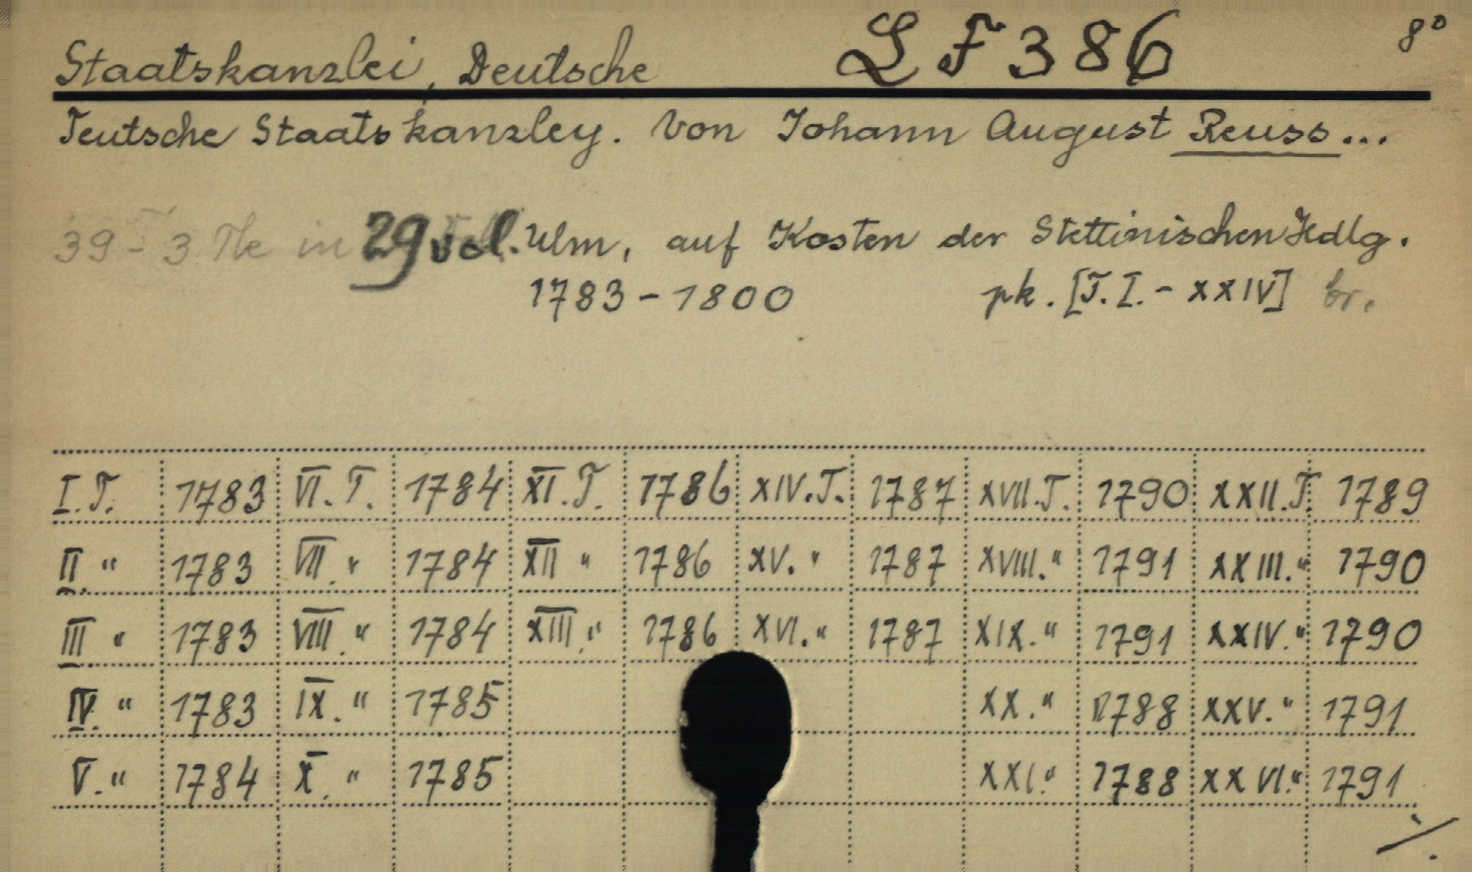 Staatskanzlei, Deutsche LF386 8°
Teutsche Staatskanzley. Von Johann August Reuss...
39 - 3 Tle in 29 vol. Ulm, auf Kosten der Stettinischen Hdlg.
1783-1800 pk. [T. I. - XXIV] br.
I. T. 1783 VI. T. 1784 XI. T. 1786 XIV. T. 1787 XVII. T. 1790 XXII. T. 1789
II. " 1783 VII. " 1784 XII " 1786 XV. " 1787 XVIII. " 1791 XXIII. " 1790
III " 1783 VIII. " 1784 XIII. " 1786 XVI. " 1787 XIX. " 1791 XXIV. " 1790
IV. " 1783 IX. " 1785 XX. " 1788 XXV. " 1791
V. " 1784 X. " 1785 XXI. " 1788 XXVI. " 1791
./.